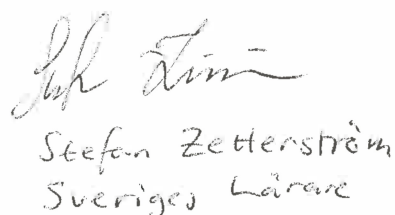 Stefan Zetterström
Sveriges Lärare